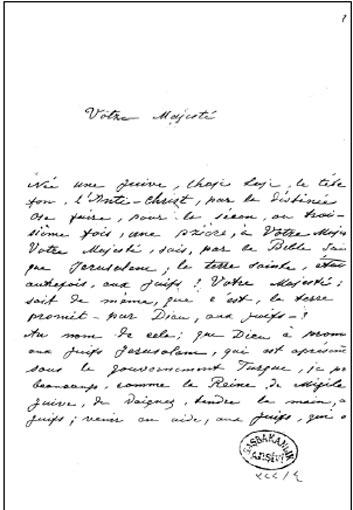 Votre Majesté
Née une juive, le tête
ton, l'Anti-Christ, par la distinée
Ose faire, pour la sécon, ou troi-
sième fois, une prière, à Votre Maje
Votre Majesté, sais, par la Bible Sain
que Jerusalem; la terre sainte, était
autrefois, aux juifs! Votre Majesté;
sait de même, que c'est, la terre
promit - par Dieu, aux juifs -!
Au nom de cela; que Dieu à prom
aux juifs Jerusalem, qui est aprésent
sous le gouvernement Turque, je pr
beaucoup, comme la Reine, de
juive, de Daignez, tendre la main, a
juifs; venir en aide, aux juifs, qui o
BAŞBAKANLIK
ARŞİVİ